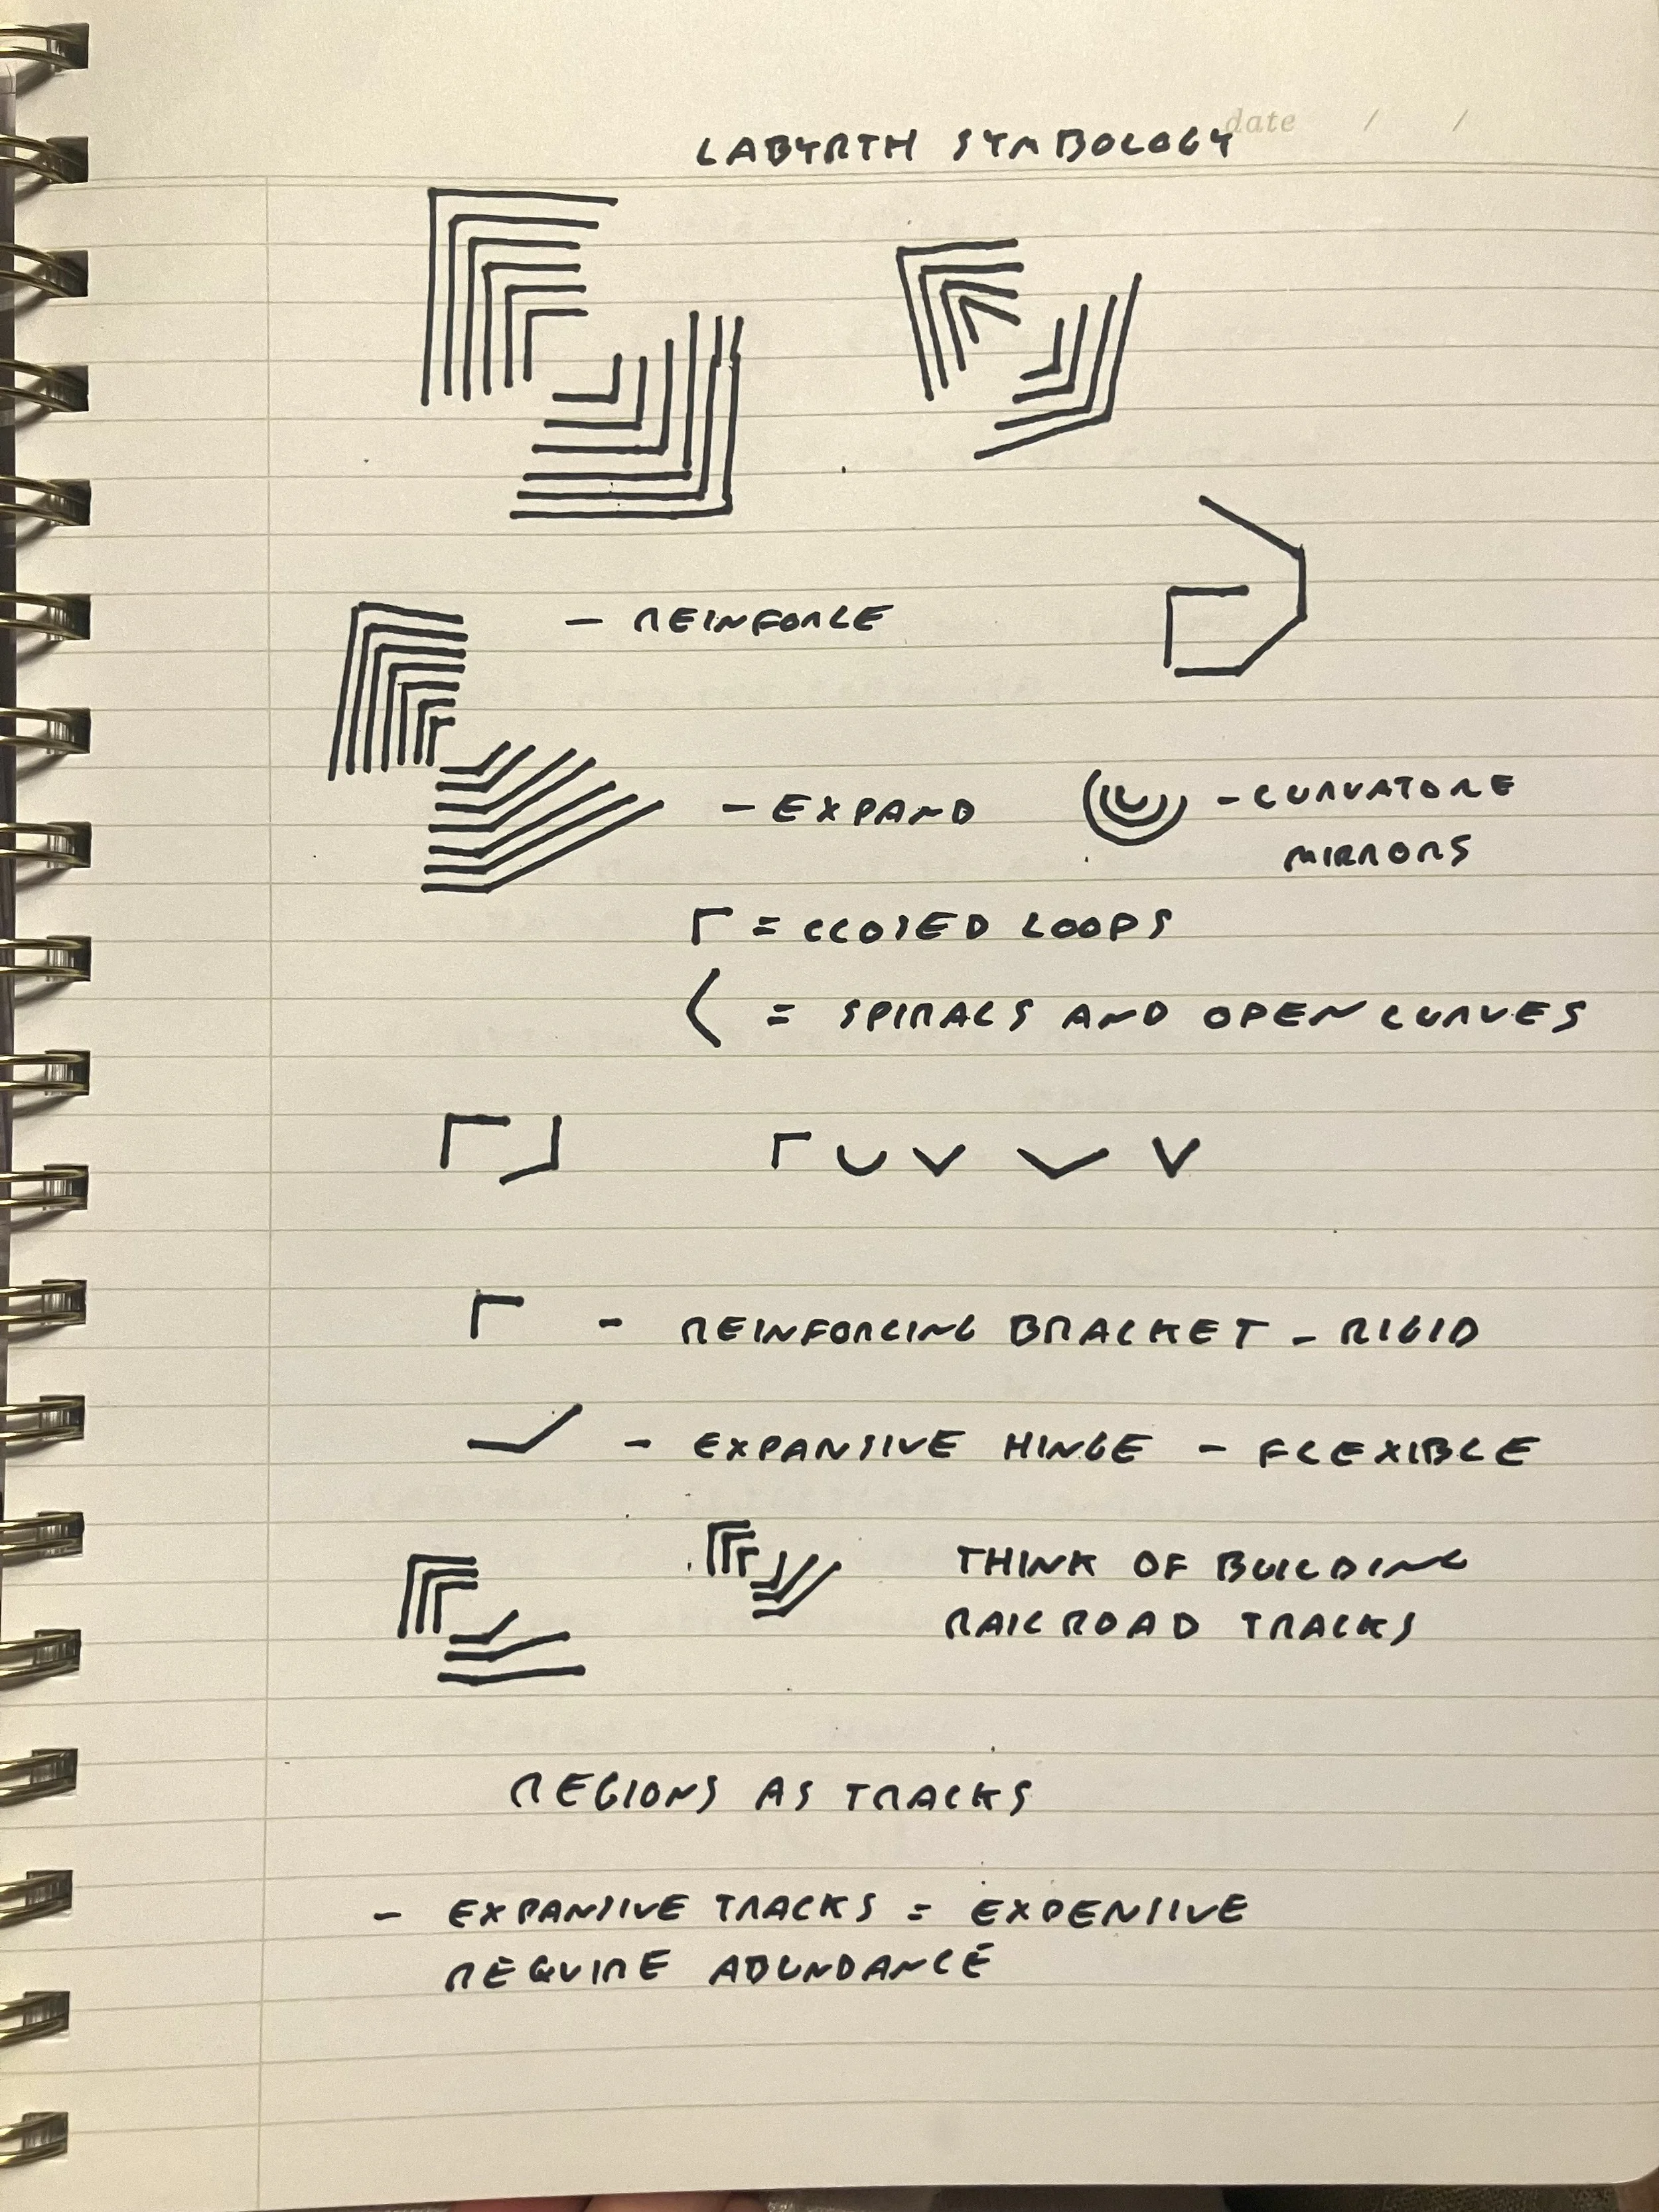 date / /
LABYRTH SYMBOLOGY
- REINFORCE
- EXPAND
- CURVATURE
MIRRORS
= CLOSED LOOPS
= SPIRALS AND OPEN CURVES
- REINFORCING BRACKET - RIGID
- EXPANSIVE HINGE - FLEXIBLE
THINK OF BUILDING
RAILROAD TRACKS
REGIONS AS TRACKS
- EXPANSIVE TRACKS = EXPENSIVE
REQUIRE ABUNDANCE